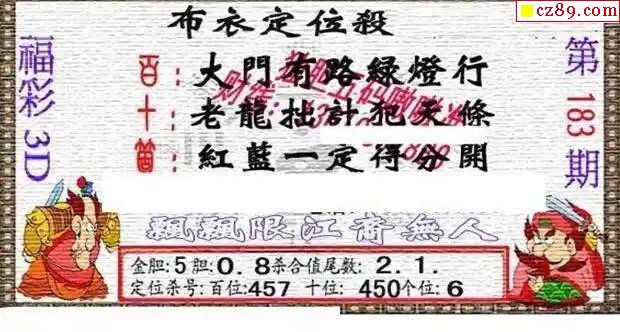 cz89.com
布衣定位殺
福彩3D
第183期
百:大門有路綠燈行
十:老龍拙計犯天條
個:紅藍一定得分開
飄飄限江裔無人
金胆:5胆:0.8杀合值尾数:2.1.
定位杀号:百位:457 十位:450个位:6